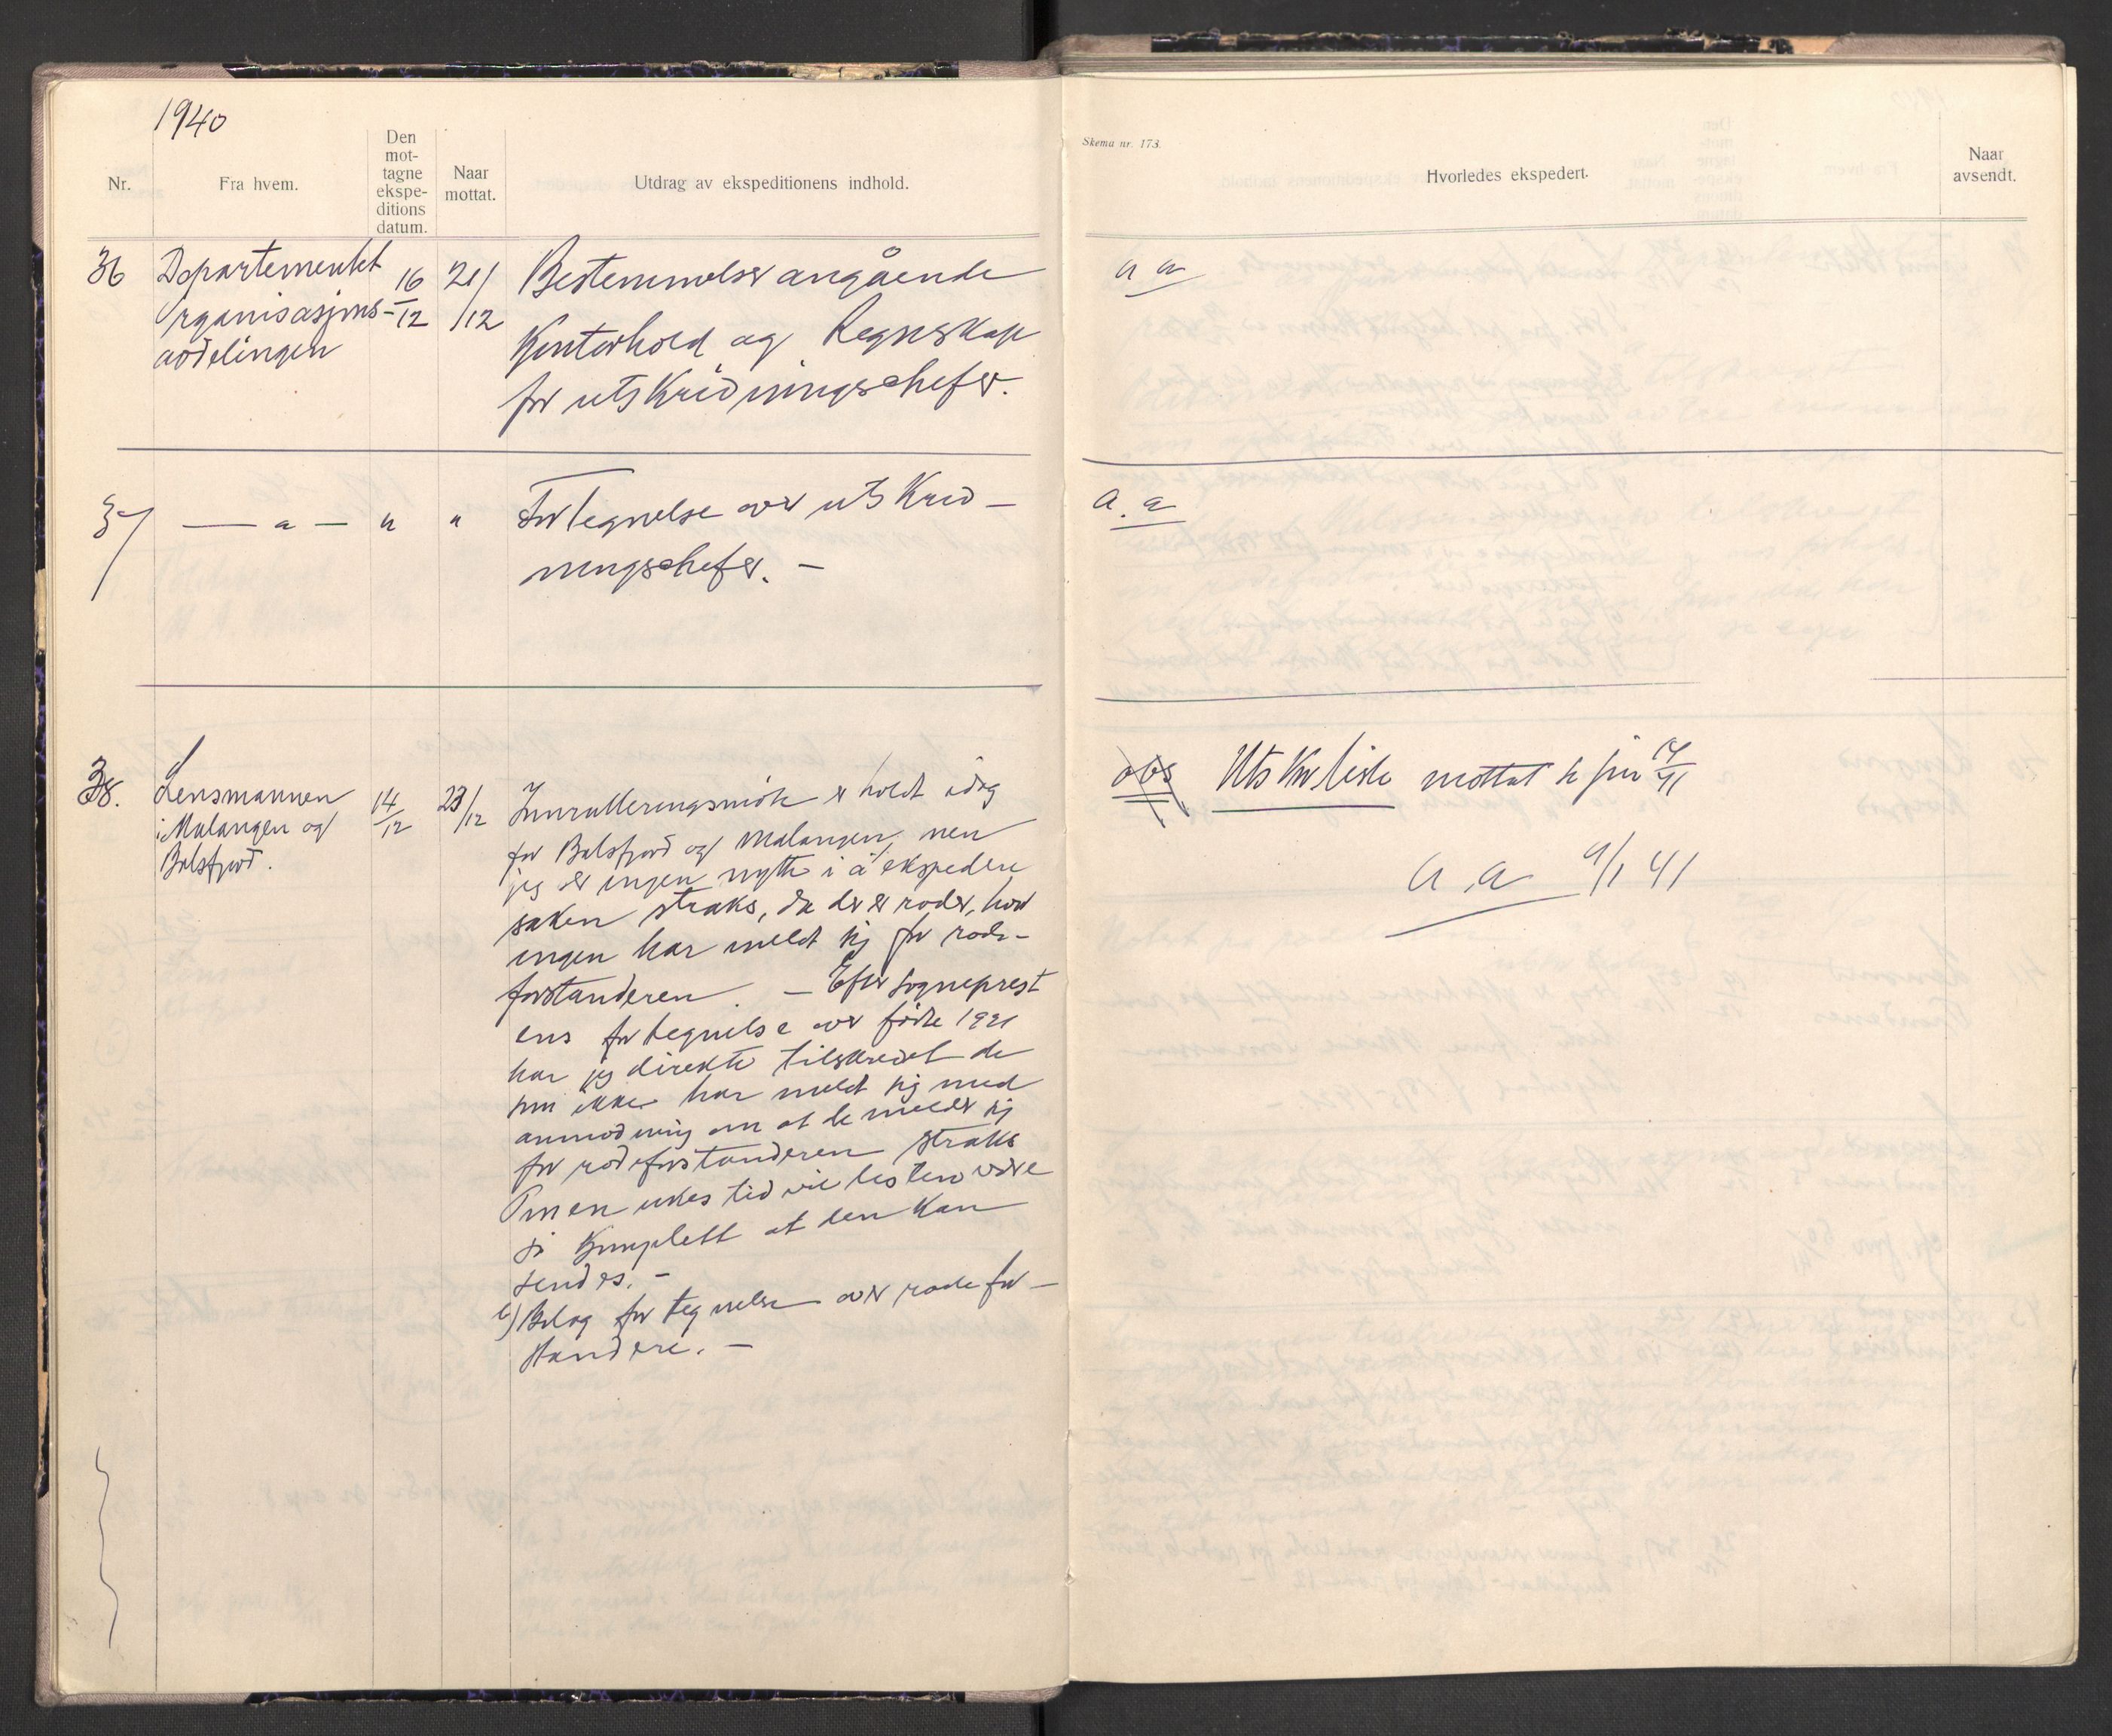 1940
Nr.
Fra hvem.
Den
mot-
tagne
ekspe-
ditions
datum.
Naar
mottat.
Utdrag av ekspeditionens indhold.
36 Departementet 16/12 21/12 Bestemmelser angående
Organisasjons-
avdelingen
Kontorhold og Regnskap
for utskrivningschefer.
37 — " — " " Fortegnelse over utskriv-
ningschefer. —
38. Lensmannen 14/12 23/12 Innrulleringsmöte er holdt idag
i Malangen og
Balsfjord.
for Balsfjord og Malangen, men
jeg ser ingen nytte i å ekspedere
saken straks, da der er roder, hvor
ingen har meldt sig for rode-
forstanderen. — Efter sogneprest
ens fortegnelse over födte 1921
har jeg direkte tilskrevet de
som ikke har meldt sig med
anmodning om at de melder sig
for rodeforstanderen straks
Om en ukes tid vil listen være
så komplett at den kan
sendes. —
Bilag fortegnelse over rodefor-
standere. —
Skema nr. 173.
Hvorledes ekspedert.
Naar
avsendt.
a a
a. a
obs Utskr liste mottat
a. a 9/1 41